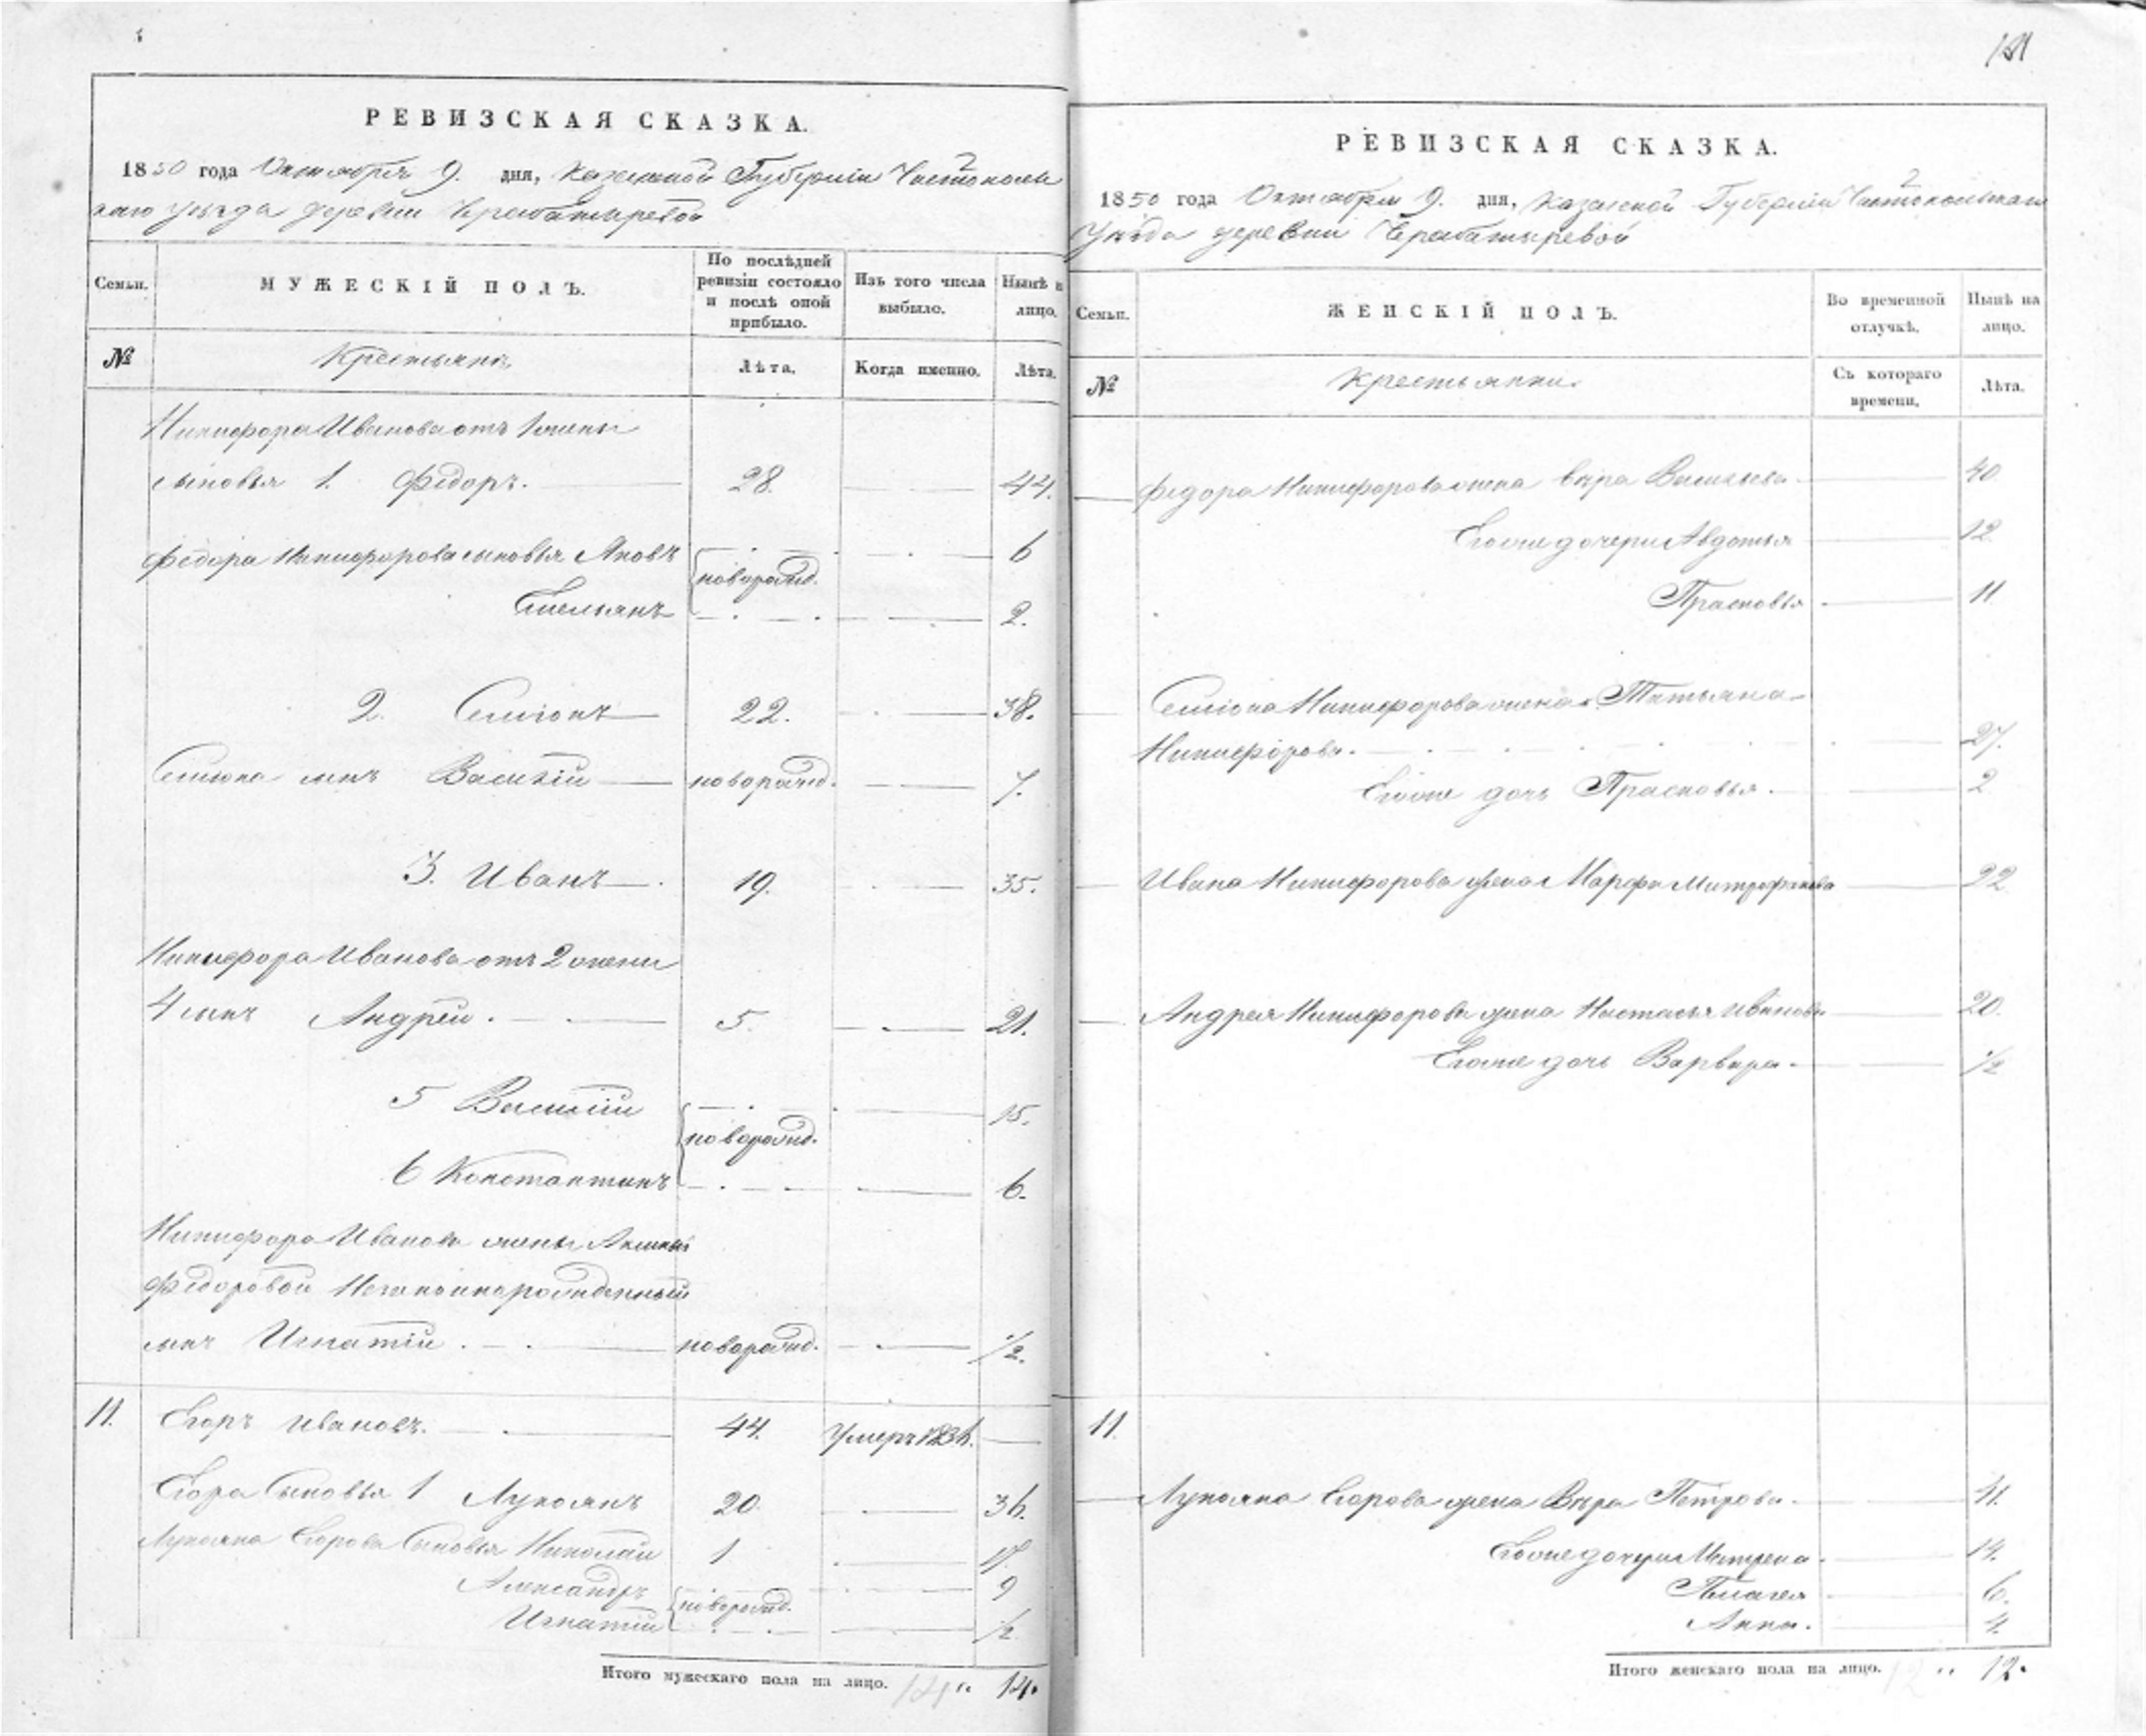 РЕВИЗСКАЯ СКАЗКА.
1850 года Октября 9. дня, Казанской Губерніи Чистополь
скаго уѣзда деревни
Семьи. МУЖЕСКІЙ ПОЛЪ. По послѣдней ревизіи состояло и послѣ оной прибыло. Изъ того числа выбыло. Нынѣ на лицо.
№ Крестьянъ Лѣта. Когда именно. Лѣта.
Никифора Иванова отъ 1 жены
сыновья 1. Федоръ. 28. 44.
Федора Никифорова сыновья Яковъ 6
новорожд.
Емельянъ 2.
2. Семіонъ 22. 38.
Семіона сынъ Василій новорожд. 7.
3. Иванъ 19. 35.
Никифора Иванова отъ 2 жены
4 сынъ Андрей. 5. 21.
5 Василій 15.
новорожд.
6 Константинъ 6.
Никифора Иванова жены
Федоровой Незаконнорожденный
сынъ Игнатій. новорожд. 1/2.
11. Егоръ Ивановъ. 44. Умеръ
Егора Сыновья 1 Лукоянъ 20. 36.
Лукояна Егорова Сыновья Николай 1 17.
Александръ 9
новорожд.
Игнатій 1/2
Итого мужескаго пола на лицо. 14 " 14.
РЕВИЗСКАЯ СКАЗКА.
1850 года Октября 9. дня, Казанской Губерніи Чистопольскаго
Уѣзда деревни
Семьи. ЖЕНСКІЙ ПОЛЪ. Во временной отлучкѣ. Нынѣ на лицо.
№ Крестьянки. Съ котораго времени. Лѣта.
Федора Никифорова жена Вѣра Васильева 40
Егоже дочери Авдотья 12
Прасковья 11
Семіона Никифорова жена Татьяна
Никифорова. 27.
Егоже дочь Прасковья. 2
Ивана Никифорова жена Марфа Митрофанова 22
Андрея Никифорова жена Настасья Иванова 20.
Егоже дочь Варвара 1/2
11.
Лукояна Егорова жена Вѣра Петрова 41.
Егоже дочери Матрена 14.
Пелагея 6.
Анна. 4.
Итого женскаго пола на лицо. 12 " 12.